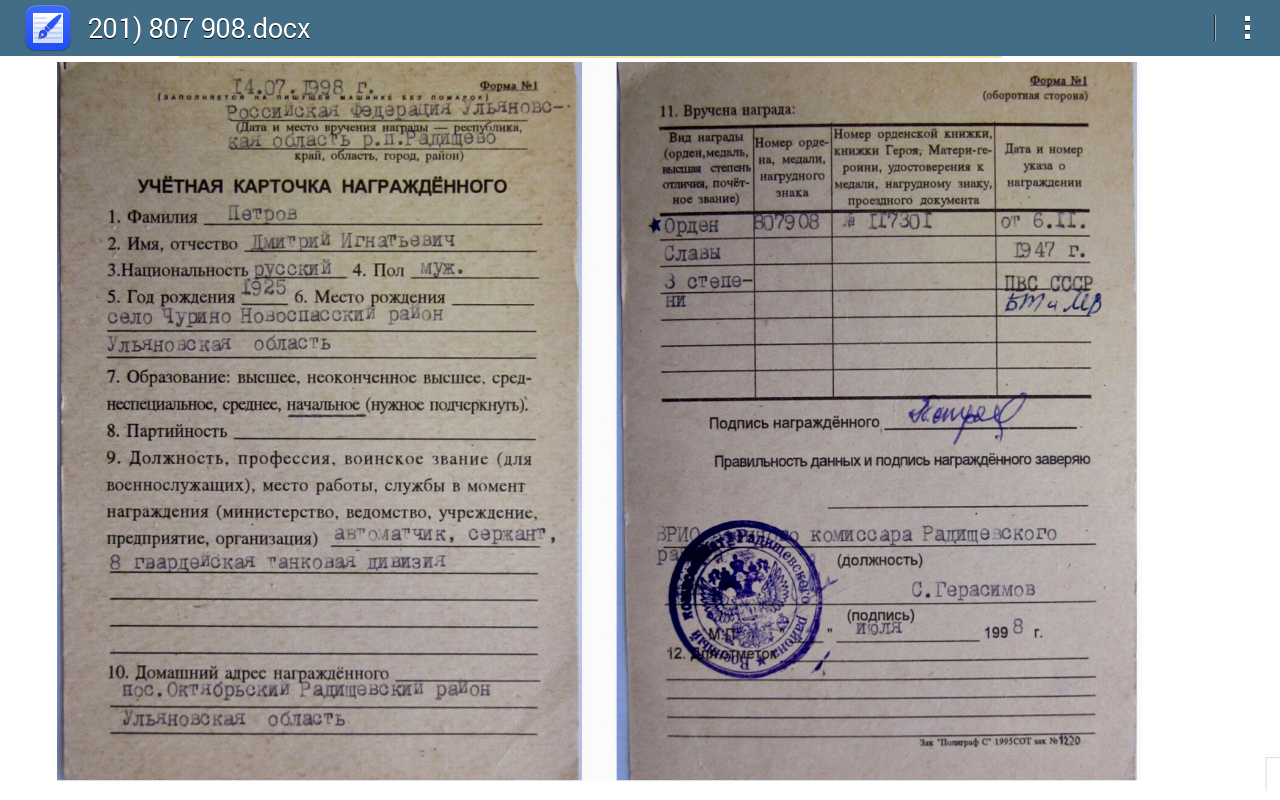 201) 807 908.docx
14.07.1998 г.
Форма №1
(ЗАПОЛНЯЕТСЯ НА ПИШУЩЕЙ МАШИНКЕ БЕЗ ПОМАРОК)
Российская Федерация Ульяновс-
(Дата и место вручения награды — республика,
кая область р.п.Радищево
край, область, город, район)
УЧЁТНАЯ КАРТОЧКА НАГРАЖДЁННОГО
1. Фамилия Петров
2. Имя, отчество Дмитрий Игнатьевич
3.Национальность русский 4. Пол муж.
5. Год рождения 1925 6. Место рождения
село Чурино Новоспасский район
Ульяновская область
7. Образование: высшее, неоконченное высшее, сред-
неспециальное, среднее, начальное (нужное подчеркнуть).
8. Партийность
9. Должность, профессия, воинское звание (для
военнослужащих), место работы, службы в момент
награждения (министерство, ведомство, учреждение,
предприятие, организация) автоматчик, сержант,
8 гвардейская танковая дивизия
10. Домашний адрес награждённого
пос.Октябрьский Радищевский район
Ульяновская область
Форма №1
(оборотная сторона)
11. Вручена награда:
Вид награды (орден,медаль, высшая степень отличия, почёт-ное звание)
Номер орде-на, медали, нагрудного знака
Номер орденской книжки, книжки Героя, Матери-ге-роини, удостоверения к медали, нагрудному знаку, проездного документа
Дата и номер указа о награждении
Орден 807908 № 117301 от 6.11.
Славы 1947 г.
3 степе- ПВС СССР
ни
Подпись награждённого
Правильность данных и подпись награждённого заверяю
ВРИО комиссара Радищевского
(должность)
С.Герасимов
(подпись)
М.П. " июля 1998 г.
12. Для отметок
Зак "Полиграф С" 1995СОТ зак №1220